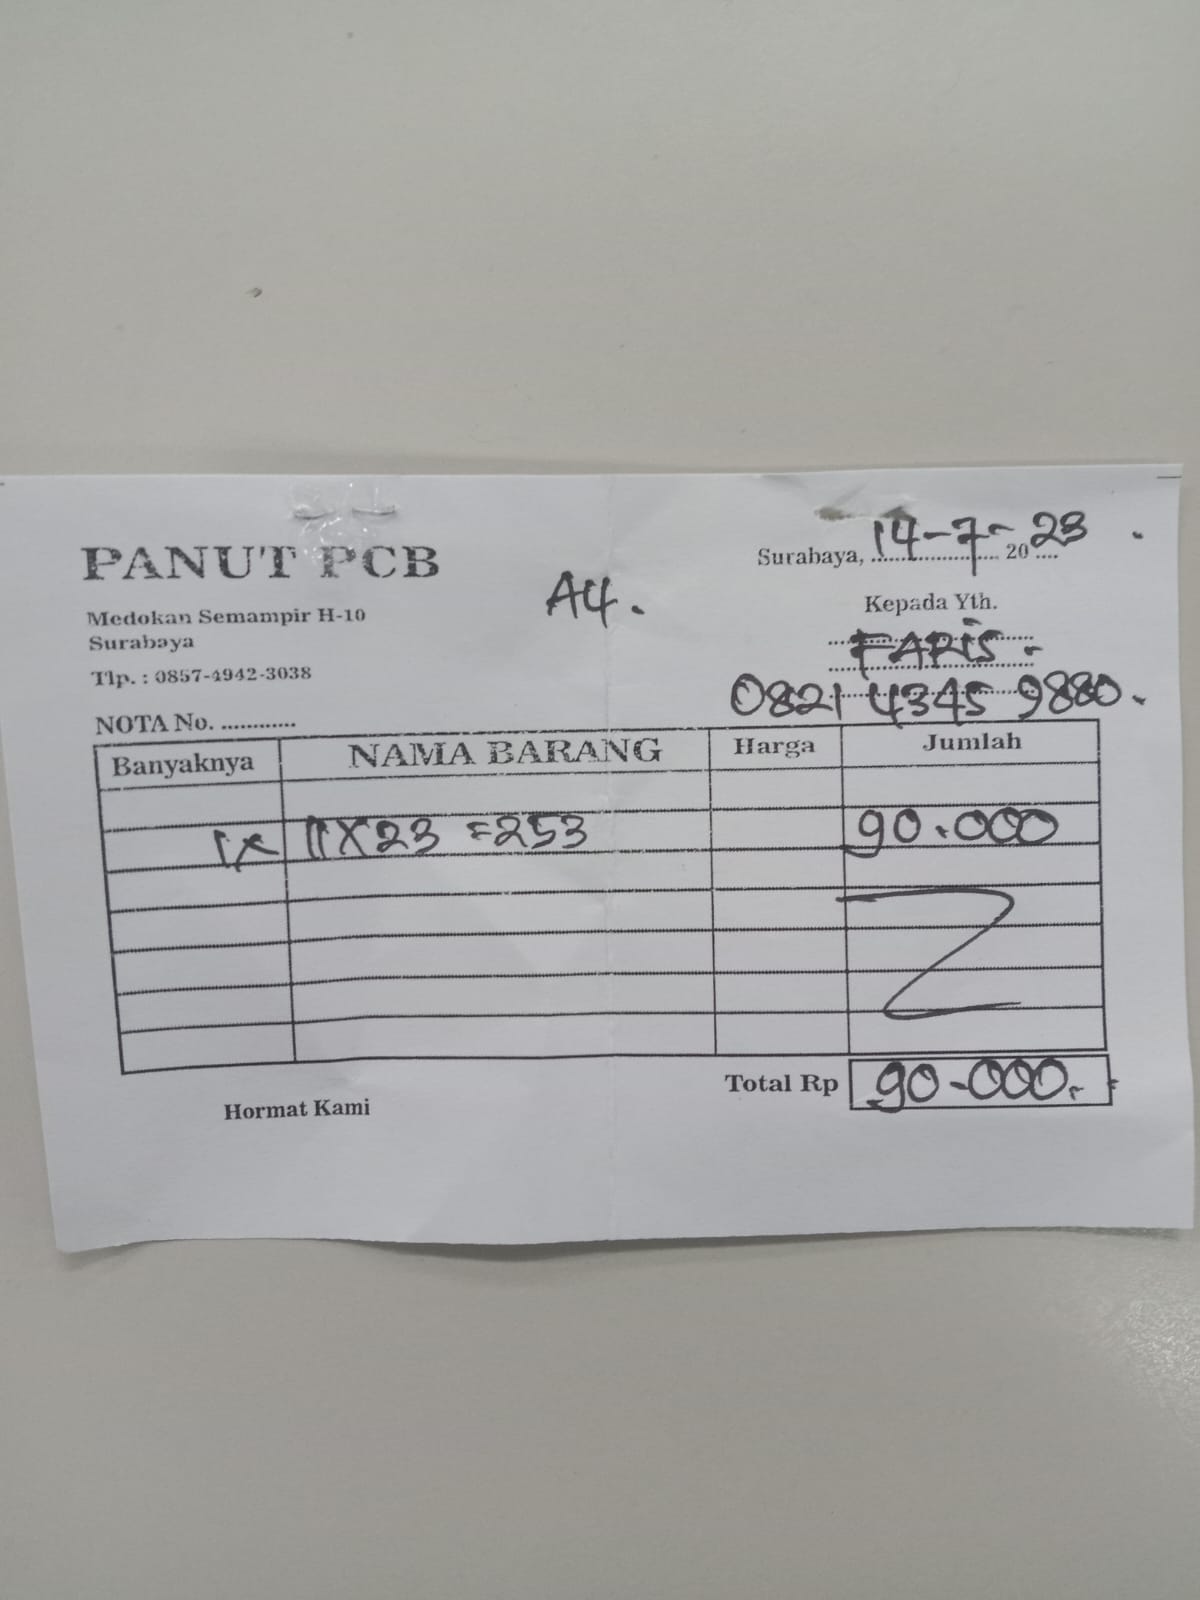 PANUT PCB
Medokan Semampir H-10
Surabaya
Tlp. : 0857-4942-3038
NOTA No. ............
A4.
Surabaya, 14-7- 2023
Kepada Yth.
FARIS.
0821 4345 9880.
Banyaknya NAMA BARANG Harga Jumlah
1x 11X23 =253 90.000
Total Rp 90-000,-
Hormat Kami